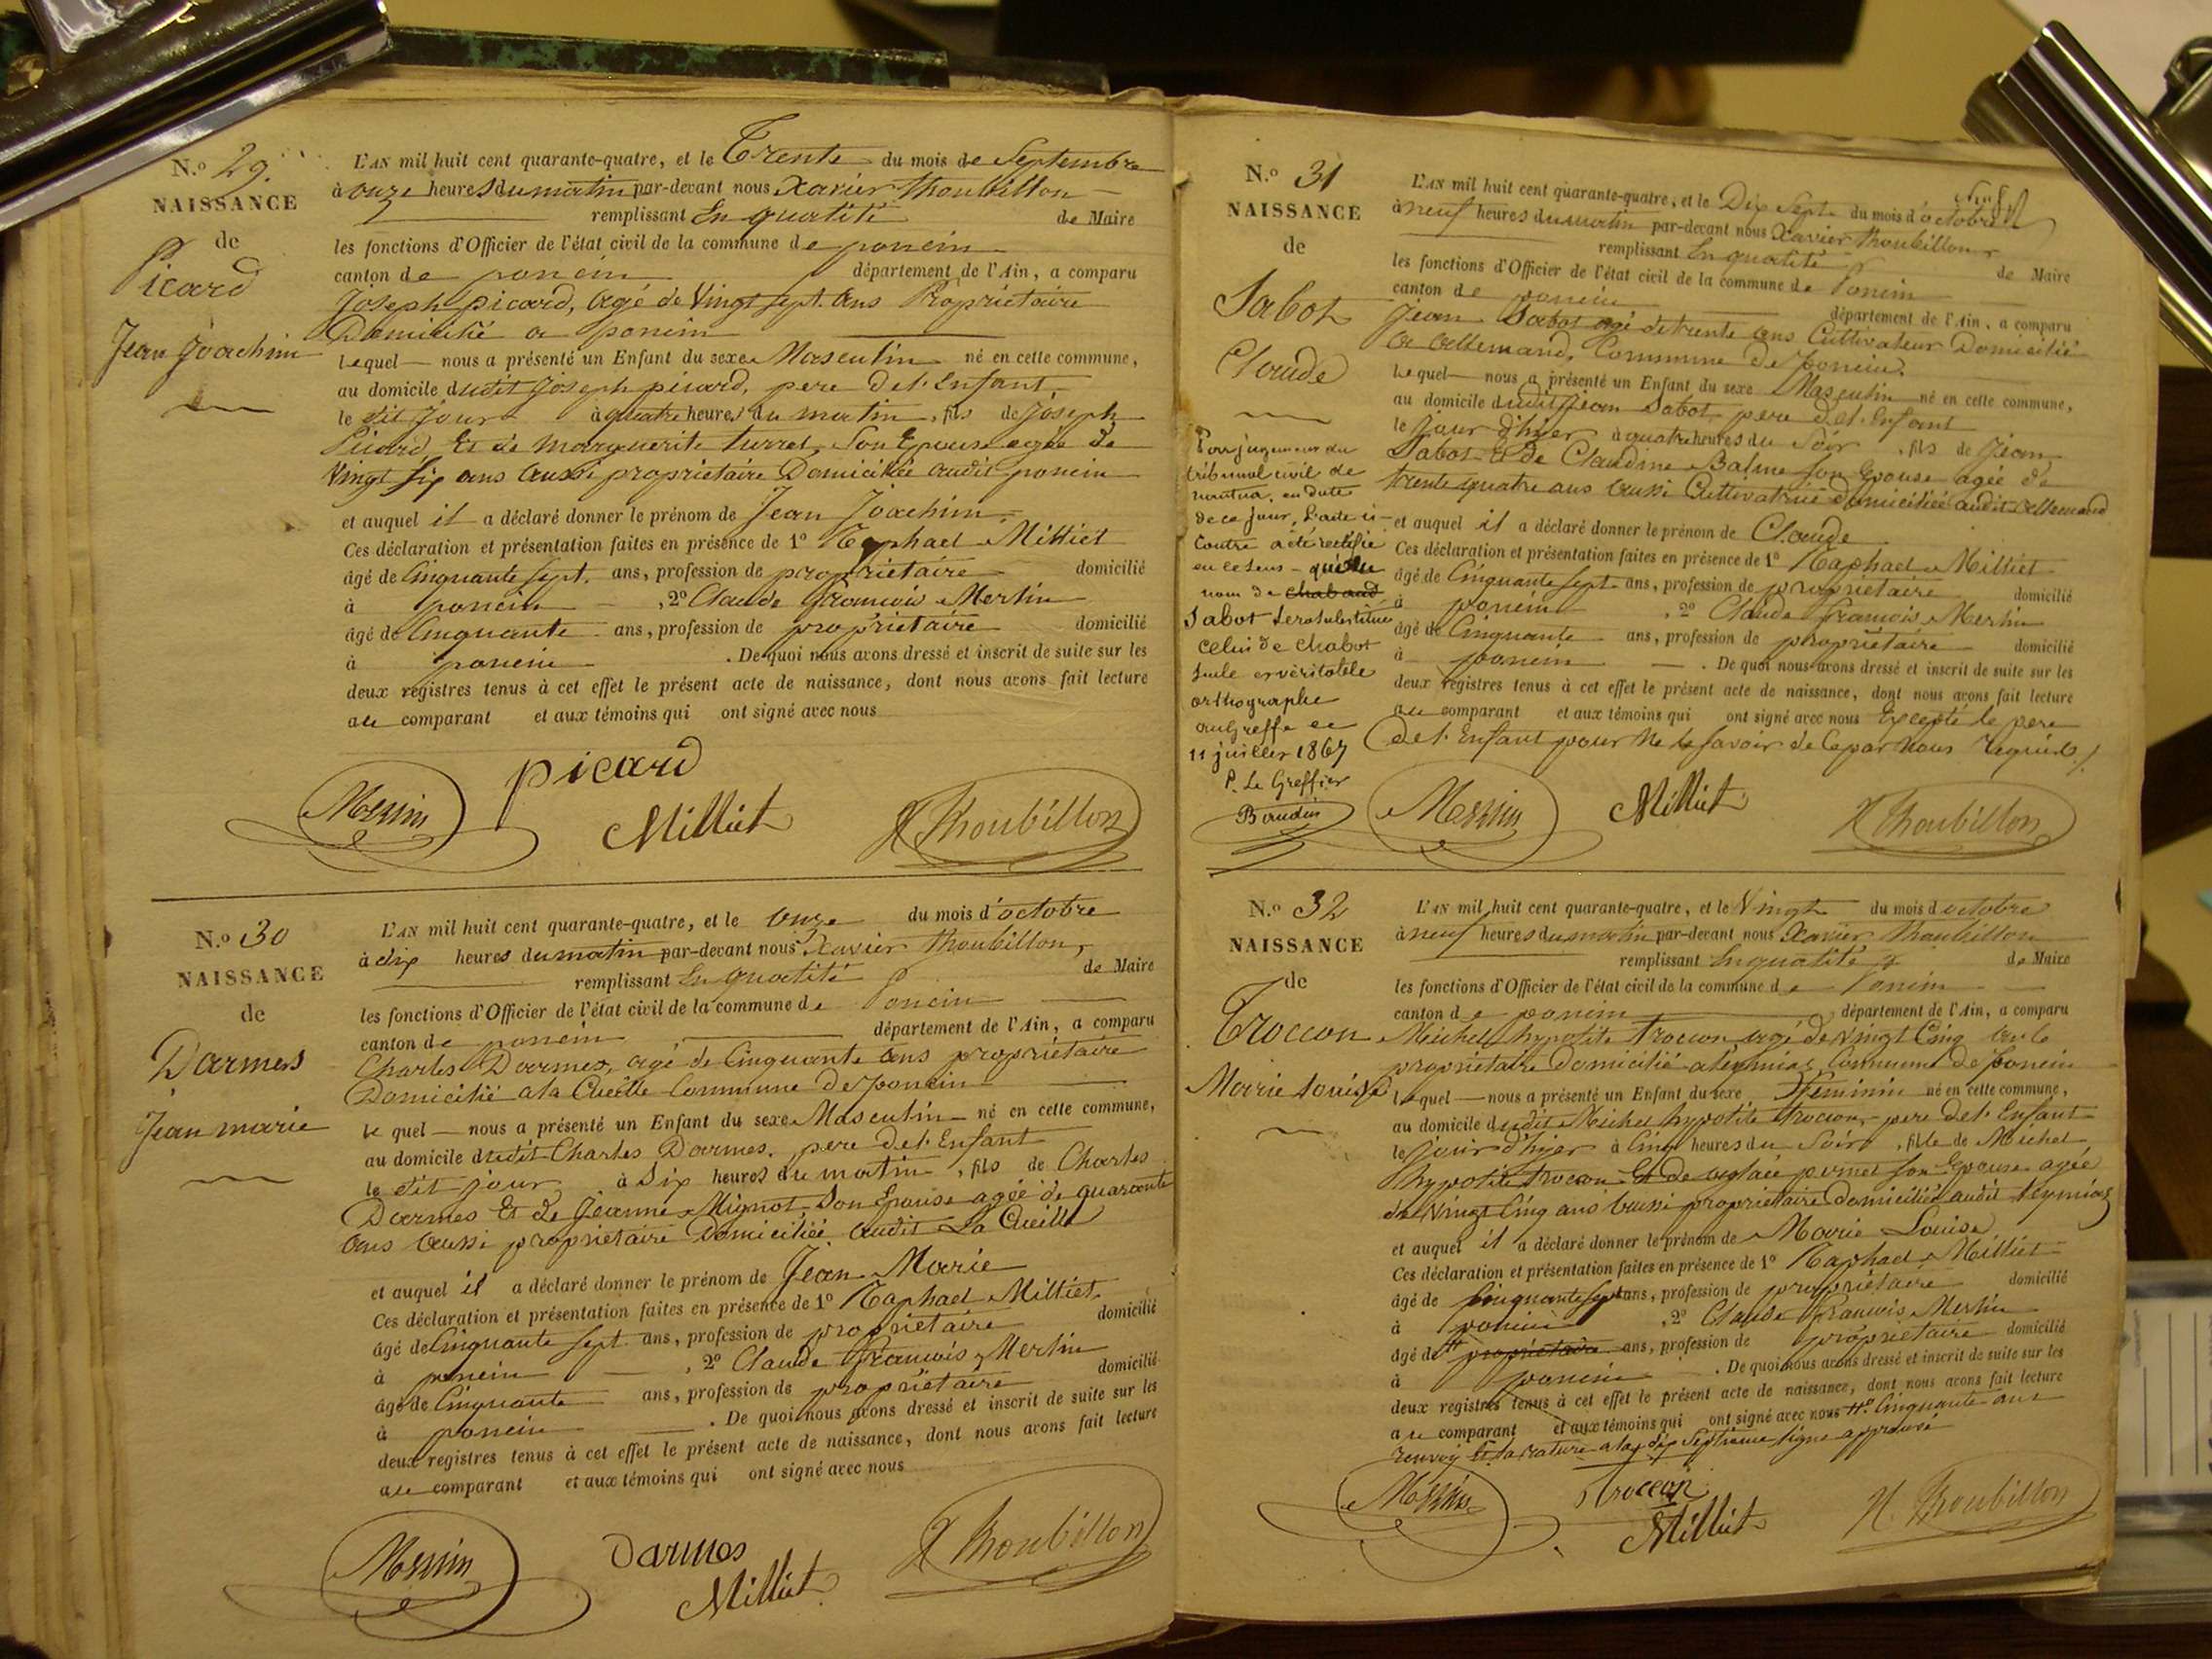 N.º 29.
NAISSANCE
de
Picard
Jean Joachim
L'AN mil huit cent quarante-quatre, et le Trente du mois de Septembre
à onze heures du matin par-devant nous Xavier Thoubillon
remplissant En qualité de Maire
les fonctions d'Officier de l'état civil de la commune de poncin
canton de poncin département de l'Ain, a comparu
Joseph picard, agé de Vingt sept ans Propriétaire
Domicilié a poncin
lequel nous a présenté un Enfant du sexe Masculin né en cette commune,
au domicile dudit Joseph picard, pere de l'Enfant
le dit jour à quatre heures du matin, fils de Joseph
Picard, Et de Marguerite turrel, Son Epouse agée de
Vingt six ans aussi propriétaire Domiciliée audit poncin
et auquel il a déclaré donner le prénom de Jean Joachim
Ces déclaration et présentation faites en présence de 1º Raphael Milliet
âgé de Cinquante sept ans, profession de propriétaire domicilié
à poncin, 2º Claude françois Merlin
âgé de Cinquante ans, profession de propriétaire domicilié
à poncin. De quoi nous avons dressé et inscrit de suite sur les
deux registres tenus à cet effet le présent acte de naissance, dont nous avons fait lecture
au comparant et aux témoins qui ont signé avec nous
picard
Milliet
X Thoubillon
N.º 30
NAISSANCE
de
Darmes
Jean marie
L'AN mil huit cent quarante-quatre, et le onze du mois d'octobre
à dix heures du matin par-devant nous Xavier Thoubillon,
remplissant En qualité de Maire
les fonctions d'Officier de l'état civil de la commune de Poncin
canton de poncin département de l'Ain, a comparu
Charles Darmes, agé de Cinquante ans propriétaire
Domicilié a la Cueille Commune de poncin
le quel nous a présenté un Enfant du sexe Masculin né en cette commune,
au domicile dudit Charles Darmes, pere de l'Enfant
le dit jour à Six heures du matin, fils de Charles
Darmes Et de Jeanne Mignot Son Epouse agée de quarante
ans aussi propriétaire Domiciliée audit La Cueille
et auquel il a déclaré donner le prénom de Jean Marie
Ces déclaration et présentation faites en présence de 1º Raphael Milliet
âgé de Cinquante sept ans, profession de propriétaire domicilié
à poncin, 2º Claude François Merlin
âgé de Cinquante ans, profession de propriétaire domicilié
à poncin. De quoi nous avons dressé et inscrit de suite sur les
deux registres tenus à cet effet le présent acte de naissance, dont nous avons fait lecture
au comparant et aux témoins qui ont signé avec nous
Darmes
Milliet
X Thoubillon
N.º 31
NAISSANCE
de
Sabot
Claude
Par jugement du
tribunal civil de
nantua, en date
de ce jour, L'acte ci-
Contre a été rectifié
en ce sens que le
nom de chabaud
Sabot sera substitué
celui de Chabot
Seule et véritable
orthographe
au Greffe ce
11 juillet 1867
P. Le Greffier
L'AN mil huit cent quarante-quatre, et le Dix Sept du mois d'octobre
à neuf heures du matin par-devant nous Xavier Thoubillon
remplissant En qualité de Maire
les fonctions d'Officier de l'état civil de la commune de Poncin
canton de poncin département de l'Ain, a comparu
Jean Sabot agé de trente ans Cultivateur Domicilié
a allemand, Commune De Poncin.
le quel nous a présenté un Enfant du sexe Masculin né en cette commune,
au domicile dudit Jean Sabot pere de l'Enfant
le jour d'hier à quatre heures du Soir, fils de Jean
Sabot Et de Claudine Balme son Epouse agée de
trente quatre ans aussi Cultivatrice domiciliée audit allemand
et auquel il a déclaré donner le prénom de Claude
Ces déclaration et présentation faites en présence de 1º Raphael Milliet
âgé de Cinquante sept ans, profession de propriétaire domicilié
à poncin, 2º Claude François Merlin
âgé de Cinquante ans, profession de propriétaire domicilié
à poncin. De quoi nous avons dressé et inscrit de suite sur les
deux registres tenus à cet effet le présent acte de naissance, dont nous avons fait lecture
au comparant et aux témoins qui ont signé avec nous Excepté le pere
de l'Enfant pour ne le savoir de ce par nous requis
Milliet
X Thoubillon
N.º 32
NAISSANCE
de
Troccon
Marie Louise
L'AN mil huit cent quarante-quatre, et le Vingt du mois d'octobre
à neuf heures du matin par-devant nous Xavier Thoubillon
remplissant En qualité de Maire
les fonctions d'Officier de l'état civil de la commune de Poncin
canton de poncin département de l'Ain, a comparu
Michel hypolite troccon agé de Vingt Cinq ans
propriétaire domicilié a leymiaz Commune de poncin
lequel nous a présenté un Enfant du sexe féminin né en cette commune,
au domicile dudit Michel hypolite troccon, pere de l'Enfant
le jour d'hier à Cinq heures du Soir, fille de Michel
hypolite troccon Et de aglaé pernet son Epouse agée
de Vingt Cinq ans aussi propriétaire domiciliée audit leymiaz
et auquel il a déclaré donner le prénom de Marie Louise
Ces déclaration et présentation faites en présence de 1º Raphael Milliet
âgé de Cinquante sept ans, profession de propriétaire domicilié
à poncin, 2º Claude François Merlin
âgé de propriétaire ans, profession de propriétaire domicilié
à poncin. De quoi nous avons dressé et inscrit de suite sur les
deux registres tenus à cet effet le présent acte de naissance, dont nous avons fait lecture
au comparant et aux témoins qui ont signé avec nous Cinquante ans
renvoi Et la rature a la dix Septieme ligne approuvé
troccon
Milliet
X Thoubillon